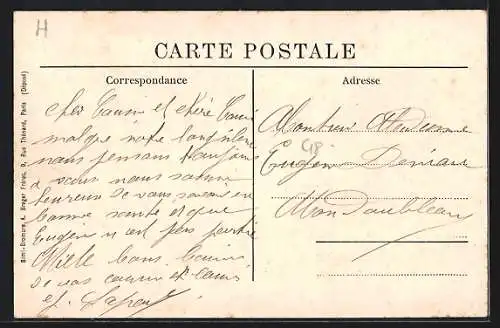 H
CARTE POSTALE
Correspondance
Adresse
Cher Cousin et chère Cousine
malgré notre long silence
nous pensons toujours
à vous nous
heureux de vous savoir en
bonne santé et que
Eugène n est pas parti
Mille bons baisers
de vos cousin et
et
Monsieur et Madame
Eugène
Mondoubleau
Simi-Bromure, A. Breger Frères, 9, Rue Thénard, Paris (Déposé)